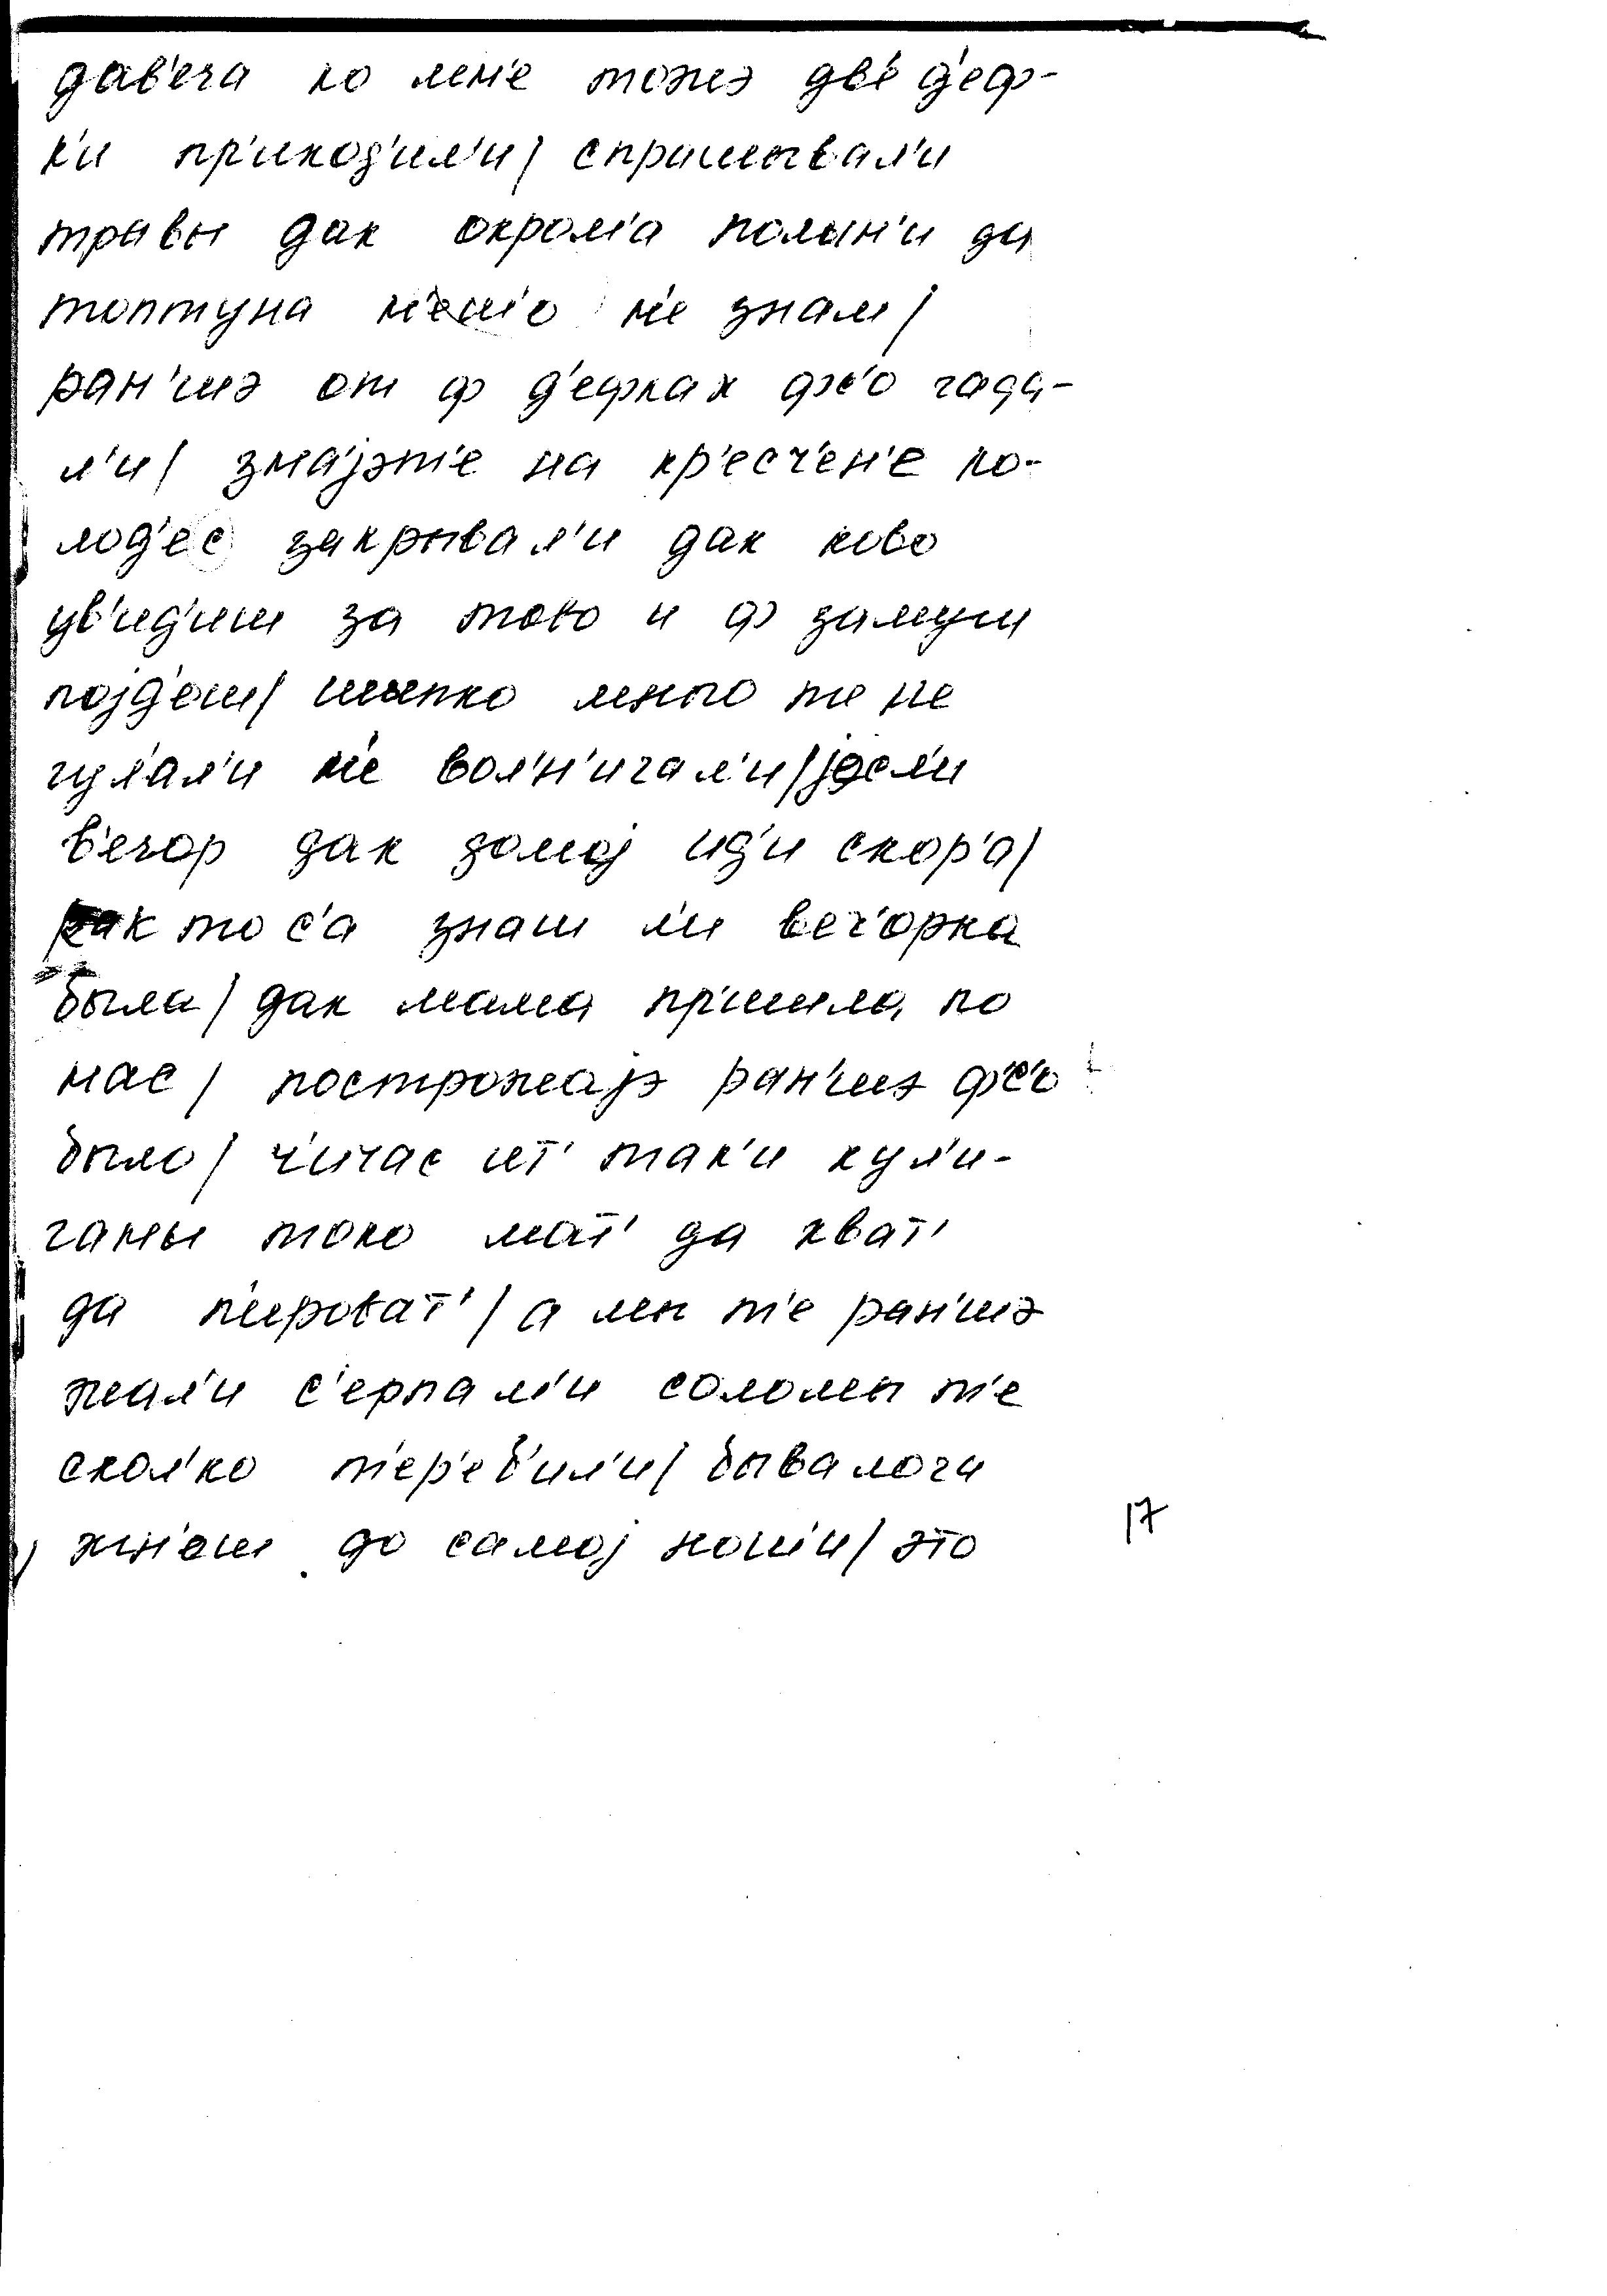 дав'еча ко мн'е тожэ дв'е д'еф-
к'и пр'иход'ил'и/ спрашывал'и
травы дак окром'а полын'и да
топтуна н'еш'о н'е знам/
ран'шэ от ф д'ефках фс'о гада-
л'и/ знајэт'е на кр'есч'ен'е ко-
лод'ес закрывал'и дак ково
ув'ид'иш за тово и ф замуш
појд'ош/ шыпко много т не
гул'ал'и н'е вол'н'ичал'и/јесл'и
в'ечор дак домој ид'и скор'а/
как то с'а знаш л'и веч'орка
была/ дак мама пр'ишла по
нас/ построжајэ ран'шэ фс'о
было/ ч'ичас ит' так'и хул'и-
ганы токо мат' да хват'
да п'ировать'/ а мы т'е ран'шэ
жал'и с'ерпам'и соломы т'е
скол'ко т'ер'еб'ил'и/ бывалоча
жн'ош до самој нош'и/ это
17